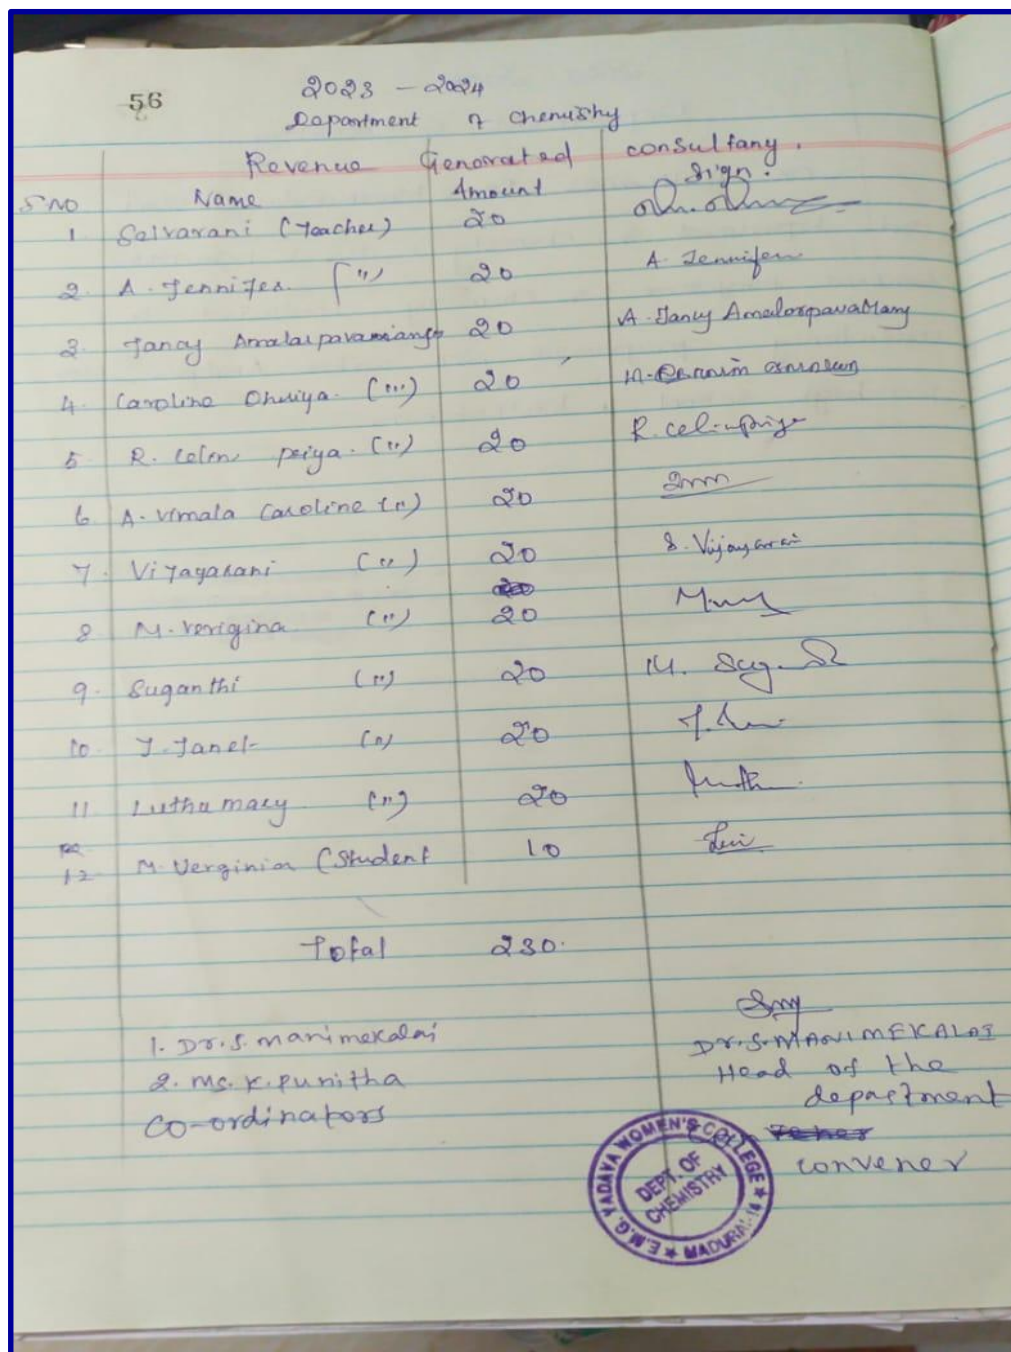 56
2023 - 2024
Department of Chemistry
Revenue Generated consultany.
S.NO Name Amount Sign.
1 Selvarani (Teacher) 20
2. A. Jennifer (") 20 A. Jennifer
3. Jancy Amalarpavamary 20 A. Jancy Amalorpava Mary
4. Caroline (''') 20
5 R. Celin priya. (") 20 R. Celinpriya
6 A. Vimala Caroline (") 20
7. Vijayarani (") 20 S. Vijayarani
20
8 M. Verigina (") 20
9. Suganthi (") 20
10. J. Janet (") 20
11 Luthu mary (") 20
12 M. Verginia (Student 10
Total 230.
1. Dr. S. Manimekalai
2. Ms. K. Punitha
Co-ordinators
Dr. S. MANIMEKALAI
Head of the
department
convener
E.M.G. YADAVA WOMEN'S COLLEGE ★ MADURAI-14 ★
DEPT. OF
CHEMISTRY